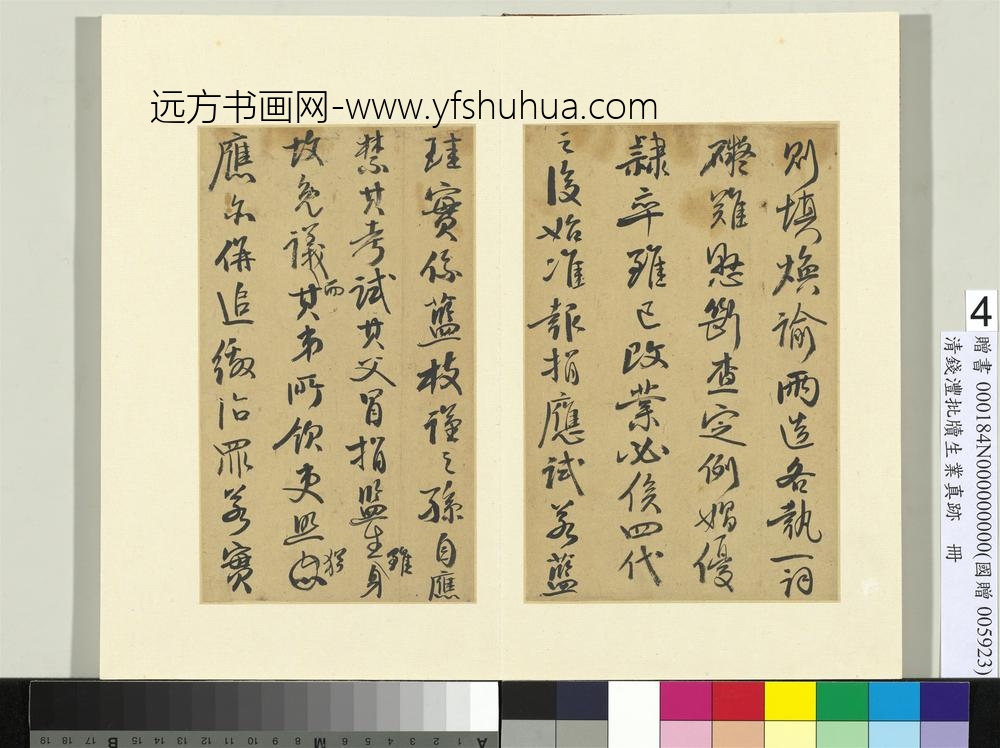 远方书画网-www.yfshuhua.com
则填焕谕两造各执一词
碍难悬断查定例娼优
隸卒虽已改業必俟四代
之後始准报捐應試若藍
珪實係藍枝謹之孫自應
禁其考試其父冒捐监生身雖
故免議而其弟所領吏照猶
應尔併追缴治罪若實
4
贈書 000184N000000000(國贈 005923)
清錢灃批牘生業真跡 冊
19 18 17 B 15 14 13 12 11 10 9 8 M 6 5 4 3 2 1 A